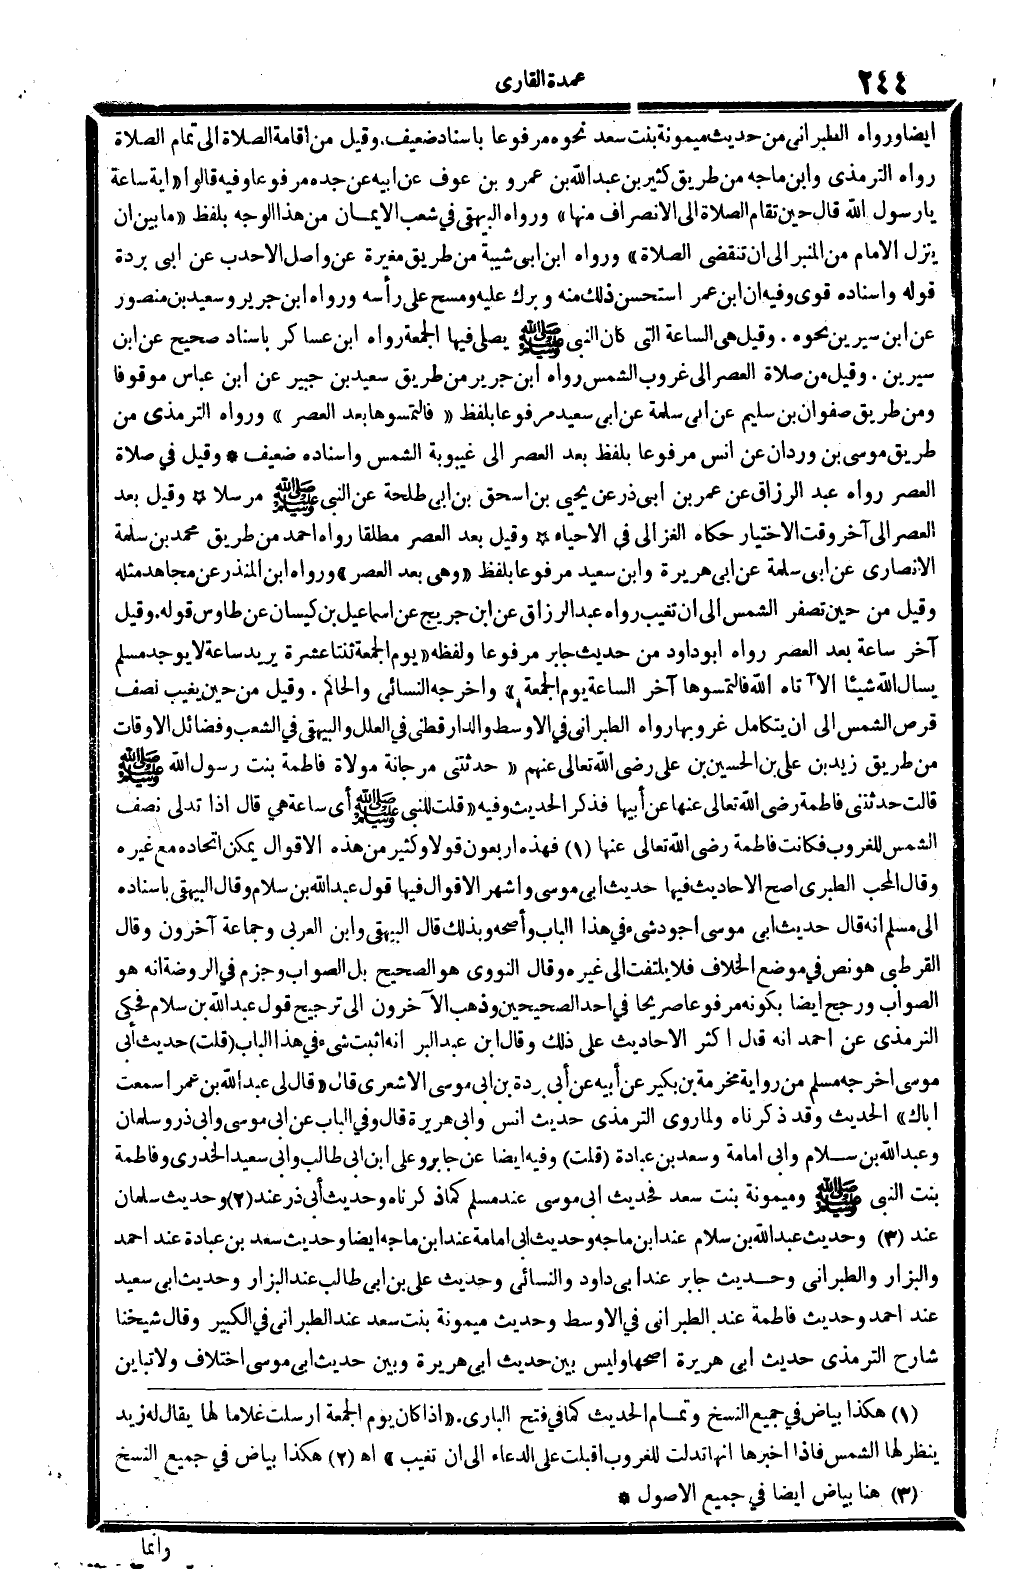 ٢٤٤
عمدة القارى
ايضا ورواه الطبرانى من حديث ميمونة بنت سعد نحوه مرفوعا باسناد ضعيف . وقيل من اقامة الصلاة الى تمام الصلاة
رواه الترمذى وابن ماجه من طريق كثير بن عبد الله بن عمرو بن عوف عن ابيه عن جده مرفوعا وفيه قالوا «اية ساعة
يارسول الله قال حين تقام الصلاة الى الانصراف منها» ورواه البيهقى فى شعب الايمان من هذا الوجه بلفظ «مابين ان
ينزل الامام من المنبر الى ان تنقضى الصلاة» ورواه ابن ابى شيبة من طريق مغيرة عن واصل الاحدب عن ابى بردة
قوله واسناده قوى وفيه ان ابن عمر استحسن ذلك منه وبرك عليه ومسح على رأسه ورواه ابن جرير وسعيد بن منصور
عن ابن سيرين نحوه . وقيل هى الساعة التى كان النبى ﷺ يصلى فيها الجمعة رواه ابن عساكر باسناد صحيح عن ابن
سيرين . وقيل من صلاة العصر الى غروب الشمس رواه ابن جرير من طريق سعيد بن جبير عن ابن عباس موقوفا
ومن طريق صفوان بن سليم عن ابى سلمة عن ابى سعيد مرفوعا بلفظ « فالتمسوها بعد العصر » ورواه الترمذى من
طريق موسى بن وردان عن انس مرفوعا بلفظ بعد العصر الى غيبوبة الشمس واسناده ضعيف * وقيل فى صلاة
العصر رواه عبد الرزاق عن عمر بن ابى ذر عن يحيى بن اسحق بن ابى طلحة عن النبى ﷺ مرسلا * وقيل بعد
العصر الى آخر وقت الاختيار حكاه الغزالى فى الاحياء * وقيل بعد العصر مطلقا رواه احمد من طريق محمد بن سلمة
الانصارى عن ابى سلمة عن ابى هريرة وابن سعيد مرفوعا بلفظ «وهى بعد العصر» ورواه ابن المنذر عن مجاهد مثله
وقيل من حين تصفر الشمس الى ان تغيب رواه عبد الرزاق عن ابن جريج عن اسماعيل بن كيسان عن طاوس قوله . وقيل
آخر ساعة بعد العصر رواه ابو داود من حديث جابر مرفوعا ولفظه «يوم الجمعة ثنتا عشرة يريد ساعة لا يوجد مسلم
يسال الله شيئا الا آتاه الله فالتمسوها آخر الساعة يوم الجمعة » واخرجه النسائى والحاكم . وقيل من حين يغيب نصف
قرص الشمس الى ان يتكامل غروبها رواه الطبرانى فى الاوسط والدارقطنى فى العلل والبيهقى فى الشعب وفضائل الاوقات
من طريق زيد بن على بن الحسين بن على رضى الله تعالى عنهم « حدثتنى مرجانة مولاة فاطمة بنت رسول الله ﷺ
قالت حدثتنى فاطمة رضى الله تعالى عنها عن أبيها فذكر الحديث وفيه «قلت للنبى ﷺ أى ساعة هي قال اذا تدلى نصف
الشمس للغروب فكانت فاطمة رضى الله تعالى عنها (١) فهذه اربعون قولا وكثير من هذه الاقوال يمكن اتحاده مع غيره
وقال المحب الطبرى اصح الاحاديث فيها حديث ابى موسى واشهر الاقوال فيها قول عبد الله بن سلام وقال البيهقى باسناده
الى مسلم انه قال حديث ابى موسى اجود شىء فى هذا الباب وأصحه وبذلك قال البيهقى وابن العربى وجماعة آخرون وقال
القرطبى هو نص فى موضع الخلاف فلا يلتفت الى غيره وقال النووى هو الصحيح بل الصواب وجزم فى الروضة انه هو
الصواب ورجح ايضا بكونه مرفوعا صريحا فى احد الصحيحين وذهب الآخرون الى ترجيح قول عبد الله بن سلام فحكى
الترمذى عن احمد انه قال اكثر الاحاديث على ذلك وقال ابن عبد البر انه اثبت شىء فى هذا الباب (قلت) حديث أبى
موسى اخرجه مسلم من رواية مخرمة بن بكير عن أبيه عن أبى بردة بن ابى موسى الاشعرى قال «قال لى عبد الله بن عمر اسمعت
اباك» الحديث وقد ذكرناه ولما روى الترمذى حديث انس وابى هريرة قال وفى الباب عن ابى موسى وابى ذر وسلمان
وعبد الله بن سلام وابى امامة وسعد بن عبادة (قلت) وفيه ايضا عن جابر وعلى ابن ابى طالب وابى سعيد الخدرى وفاطمة
بنت النبى ﷺ وميمونة بنت سعد فحديث ابى موسى عند مسلم كما ذكرناه وحديث أبى ذر عند (٢) وحديث سلمان
عند (٣) وحديث عبد الله بن سلام عند ابن ماجه وحديث ابى امامة عند ابن ماجه ايضا وحديث سعد بن عبادة عند احمد
والبزار والطبرانى وحديث جابر عند ابى داود والنسائى وحديث على بن ابى طالب عند البزار وحديث ابى سعيد
عند احمد وحديث فاطمة عند الطبرانى فى الاوسط وحديث ميمونة بنت سعد عند الطبرانى فى الكبير وقال شيخنا
شارح الترمذى حديث ابى هريرة اصحها وليس بين حديث ابى هريرة وبين حديث ابى موسى اختلاف ولا تباين
(١) هكذا بياض فى جميع النسخ وتمام الحديث كما فى فتح البارى . «اذا كان يوم الجمعة ارسلت غلاما لها يقال له زيد
ينظر لها الشمس فاذا اخبرها انها تدلت للغروب اقبلت على الدعاء الى ان تغيب » اه (٢) هكذا بياض فى جميع النسخ
(٣) هنا بياض ايضا فى جميع الاصول *
وانما